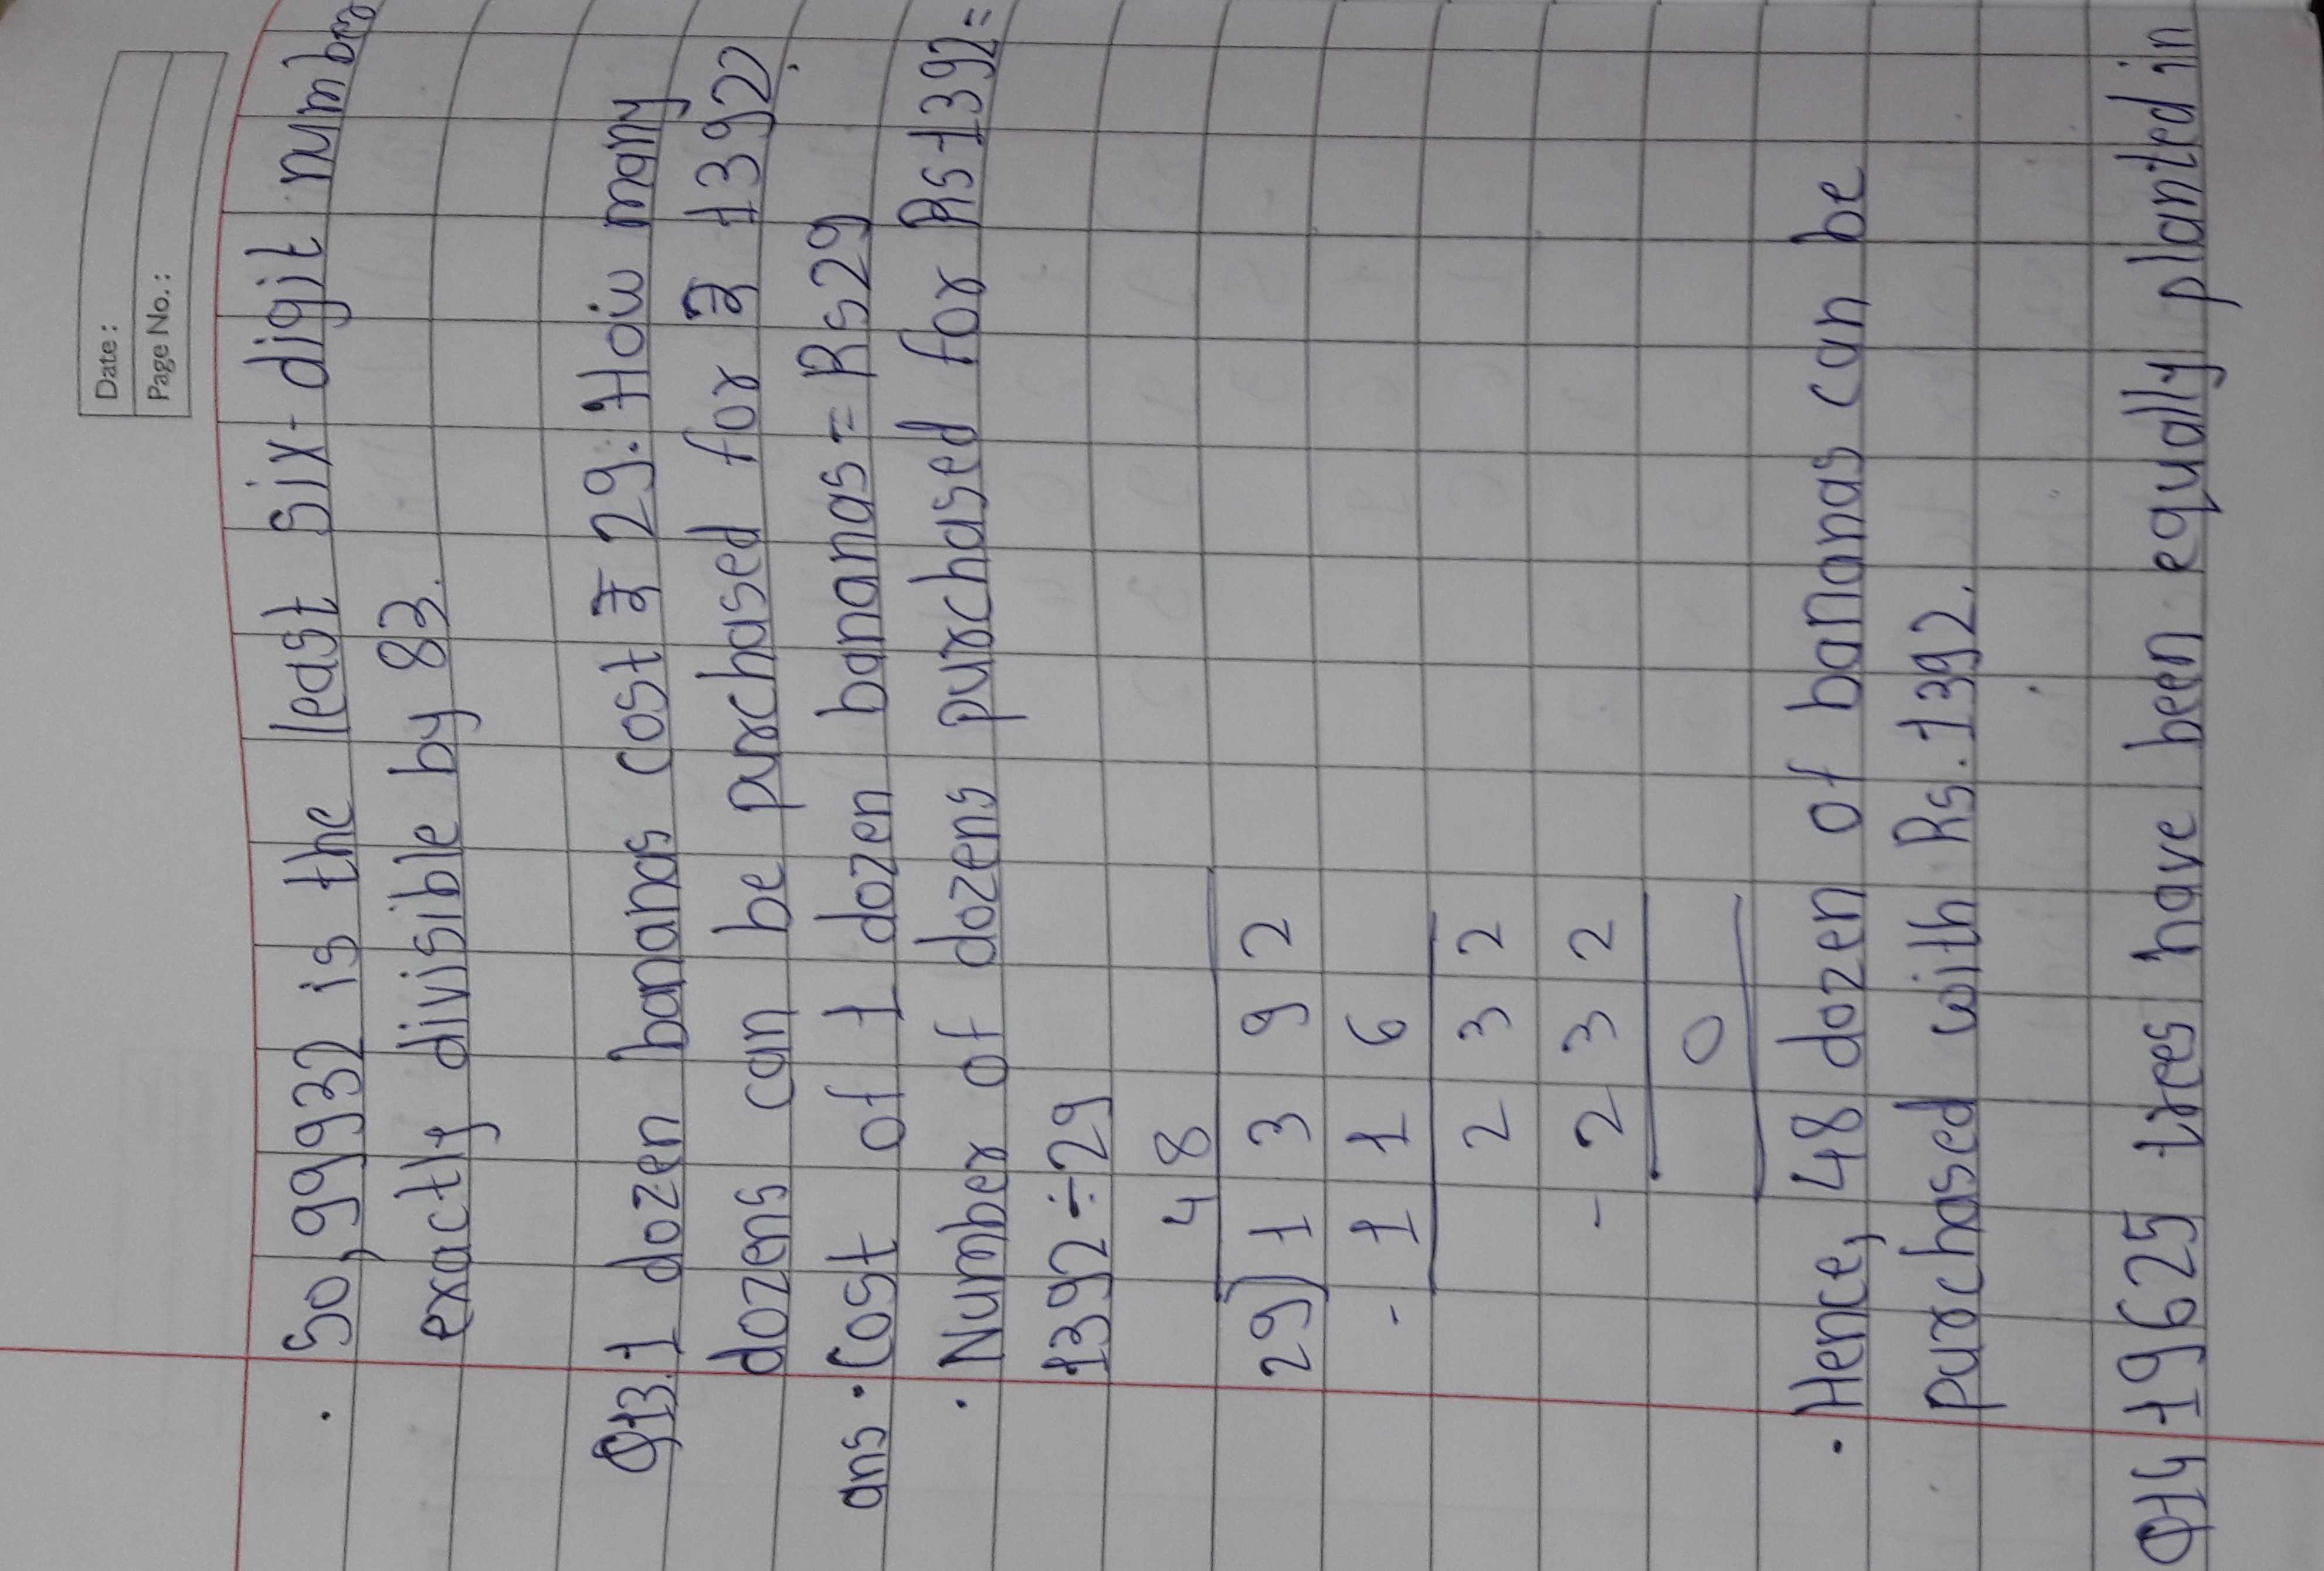 Date :
Page No.:
. So, 99932 is the least six-digit number
exactly divisible by 83.
Q13. 1 dozen bananas cost ₹ 29. How many
dozens can be purchased for ₹ 1392
ans. Cost of 1 dozen bananas = Rs29
. Number of dozens purchased for Rs1392=
1392÷29
48
29)1392
-116
232
-232
0
. Hence, 48 dozen of bananas can be
purchased with Rs.1392.
Q14 19625 trees have been equally planted in